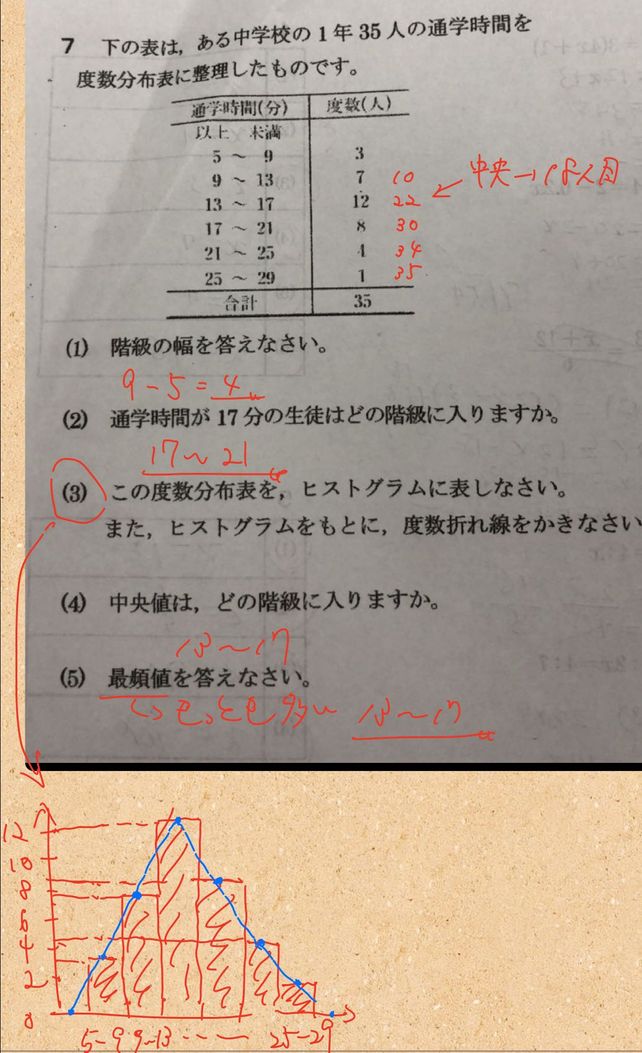 7 下の表は，ある中学校の1年35人の通学時間を
度数分布表に整理したものです。
通学時間(分) 度数(人)
以上 未満
5 ～ 9 3
9 ～ 13 7 10
13 ～ 17 12 22 ← 中央→18人目
17 ～ 21 8 30
21 ～ 25 4 34
25 ～ 29 1 35
合計 35
(1) 階級の幅を答えなさい。
9-5=4
(2) 通学時間が17分の生徒はどの階級に入りますか。
17～21
(3) この度数分布表を，ヒストグラムに表しなさい。
また，ヒストグラムをもとに，度数折れ線をかきなさい
(4) 中央値は，どの階級に入りますか。
13～17
(5) 最頻値を答えなさい。
↳もっとも多い 13～17
12
10
8
6
4
2
0
5-9 9-13 ----- 25-29